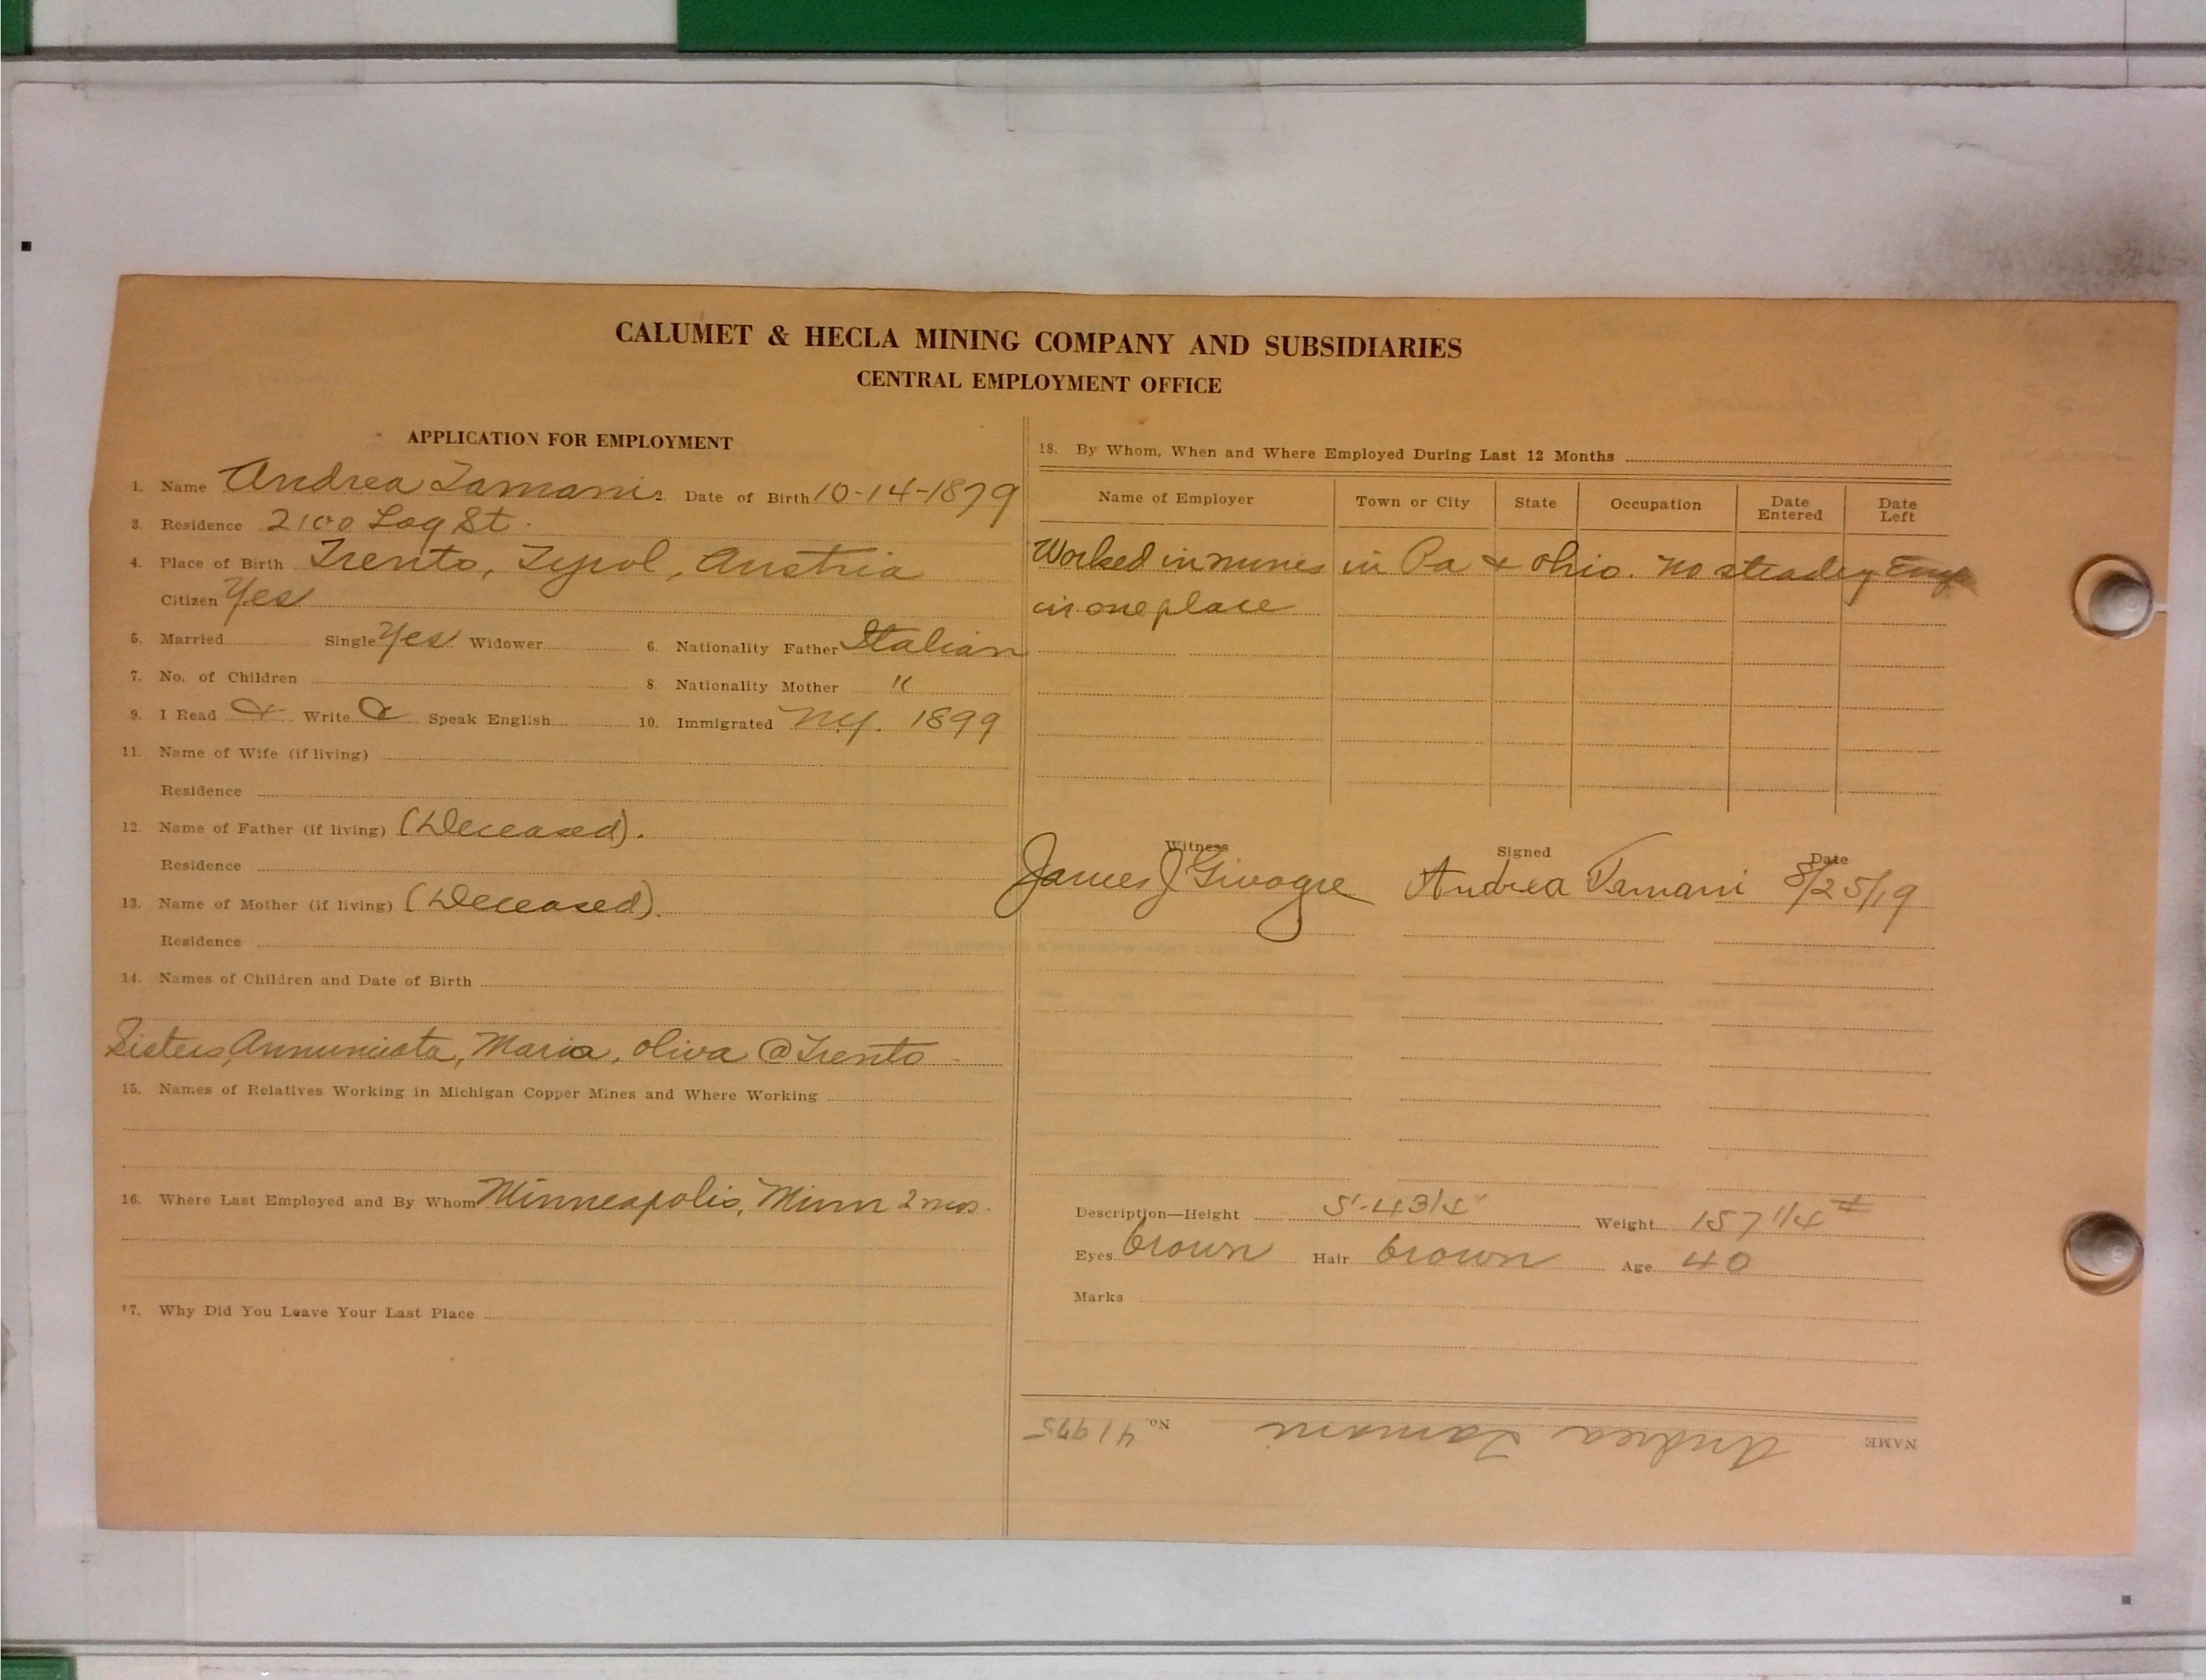 CALUMET & HECLA MINING COMPANY AND SUBSIDIARIES
CENTRAL EMPLOYMENT OFFICE
APPLICATION FOR EMPLOYMENT
1. Name Andrea Date of Birth 10-14-1879
3. Residence 2100 Log St.
4. Place of Birth Trento, Tyrol, Austria
Citizen Yes
5. Married Single Yes Widower 6. Nationality Father Italian
7. No. of Children 8. Nationality Mother "
9. I Read Write Speak English 10. Immigrated N.Y. 1899
11. Name of Wife (if living)
Residence
12. Name of Father (if living) (Deceased).
Residence
13. Name of Mother (if living) (Deceased).
Residence
14. Names of Children and Date of Birth
Sisters, Annunciata, Maria, Oliva @ Trento
15. Names of Relatives Working in Michigan Copper Mines and Where Working
16. Where Last Employed and By Whom Minneapolis, Minn 2 mos.
17. Why Did You Leave Your Last Place
18. By Whom, When and Where Employed During Last 12 Months
Name of Employer Town or City State Occupation Date Entered Date Left
Worked in mines in Pa & Ohio. No steady
in one place
Witness Signed Date
James J Andrea Tamani 8/25/19
Description—Height 5'-4 3/4" Weight 157 1/4 #
Eyes brown Hair brown Age 40
Marks
NAME Andrea Tamani No. 41975